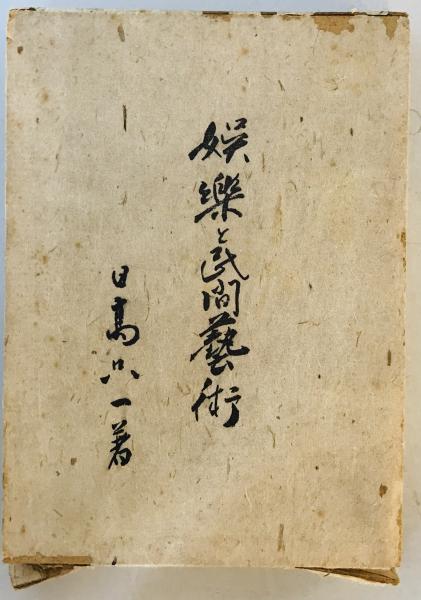 娯樂と民間藝術
日高只一著